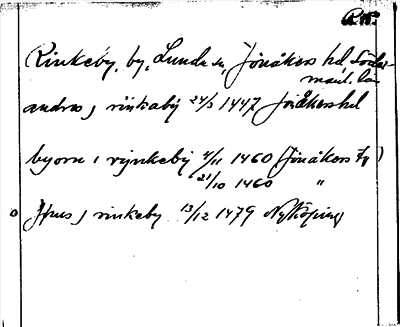 R.W.
Rinkeby, by, Lunda sn, Jönåkers hd, Söder-
manl. län
andras j rinkaby 24/3 1447 Jönåkers hd
byorn i rynkeby 4/11 1460 (Jönåkers
21/10 1460 "
j rinkaby 13/12 1479 Nyköping